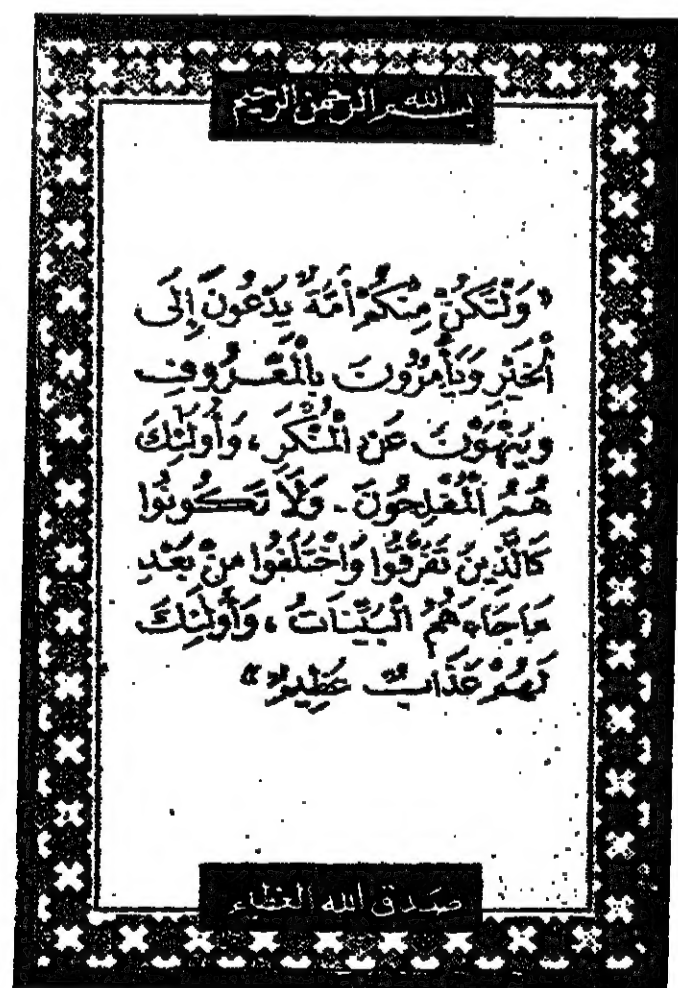 بسم الله الرحمن الرحيم
« وَلْتَكُنْ مِنْكُمْ أُمَّةٌ يَدْعُونَ إِلَى
الْخَيْرِ وَيَأْمُرُونَ بِالْمَعْرُوفِ
وَيَنْهَوْنَ عَنِ الْمُنْكَرِ ، وَأُولَئِكَ
هُمُ الْمُفْلِحُونَ - وَلَا تَكُونُوا
كَالَّذِينَ تَفَرَّقُوا وَاخْتَلَفُوا مِنْ بَعْدِ
مَا جَاءَهُمُ الْبَيِّنَاتُ ، وَأُولَئِكَ
لَهُمْ عَذَابٌ عَظِيمٌ »
صدق الله العظيم